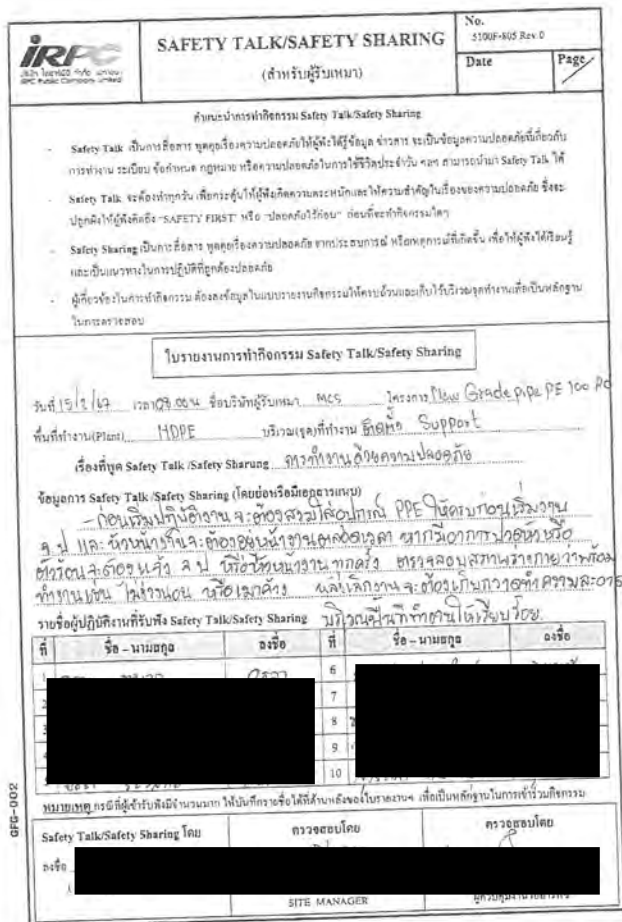 IRPC
SAFETY TALK/SAFETY SHARING
(สำหรับผู้รับเหมา)
No.
5100F-805 Rev.0
Date
Page
คำแนะนำการทำกิจกรรม Safety Talk/Safety Sharing
- Safety Talk เป็นการสื่อสาร พูดคุยเรื่องความปลอดภัยให้ผู้ฟังได้รู้ข้อมูล ข่าวสาร จะเป็นข้อมูลความปลอดภัยที่เกี่ยวกับ
การทำงาน ระเบียบ ข้อกำหนด กฎหมาย หรือความปลอดภัยในการใช้ชีวิตประจำวัน ฯลฯ สามารถนำมา Safety Talk ได้
- Safety Talk จะต้องทำทุกวัน เพื่อกระตุ้นให้ผู้ฟังเกิดความตระหนักและให้ความสำคัญในเรื่องของความปลอดภัย ซึ่งจะ
ปลูกฝังให้ผู้ฟังคิดถึง "SAFETY FIRST" หรือ "ปลอดภัยไว้ก่อน" ก่อนที่จะทำกิจกรรมใดๆ
- Safety Sharing เป็นการสื่อสาร พูดคุยเรื่องความปลอดภัย จากประสบการณ์ หรือเหตุการณ์ที่เกิดขึ้น เพื่อให้ผู้ฟังได้เรียนรู้
และเป็นแนวทางในการปฏิบัติที่ถูกต้องปลอดภัย
- ผู้เกี่ยวข้องในการทำกิจกรรม ต้องลงข้อมูลในแบบรายงานกิจกรรมให้ครบถ้วนและเก็บไว้บริเวณจุดทำงานเพื่อเป็นหลักฐาน
ในการตรวจสอบ
ใบรายงานการทำกิจกรรม Safety Talk/Safety Sharing
วันที่ 15/2/67 เวลา 08.00 น ชื่อบริษัทผู้รับเหมา MCS โครงการ New Grade pipe PE 100 RC
พื้นที่ทำงาน(Plant) HDPE บริเวณ(จุด)ที่ทำงาน ติดตั้ง Support
เรื่องที่พูด Safety Talk /Safety Sharung การทำงานด้วยความปลอดภัย
ข้อมูลการ Safety Talk /Safety Sharing (โดยย่อหรือมีเอกสารแนบ)
- ก่อนเริ่มปฏิบัติงาน จะต้องสวมใส่อุปกรณ์ PPE ให้ครบก่อนเริ่มงาน
จ.ป และ หัวหน้างานจะต้องอยู่หน้างานตลอดเวลา หากมีอาการปวดหัวหรือ
ตัวร้อนจะต้องแจ้ง จ.ป หรือหัวหน้างานทุกครั้ง ตรวจสอบสภาพร่างกายว่าพร้อม
ทำงานเช่น ไม่ง่วงนอน หรือเมาค้าง หลังเลิกงานจะต้องเก็บกวาดทำความสะอาด
รายชื่อผู้ปฏิบัติงานที่รับฟัง Safety Talk/Safety Sharing บริเวณพื้นที่ทำงานให้เรียบร้อย
ที่ ชื่อ – นามสกุล ลงชื่อ ที่ ชื่อ – นามสกุล ลงชื่อ
1 6
7
8
9
10
หมายเหตุ กรณีที่ผู้เข้ารับฟังมีจำนวนมาก ให้บันทึกรายชื่อได้ที่ด้านหลังของใบรายงานฯ เพื่อเป็นหลักฐานในการเข้าร่วมกิจกรรม
GFG-002
Safety Talk/Safety Sharing โดย ตรวจสอบโดย ตรวจสอบโดย
ลงชื่อ
SITE MANAGER